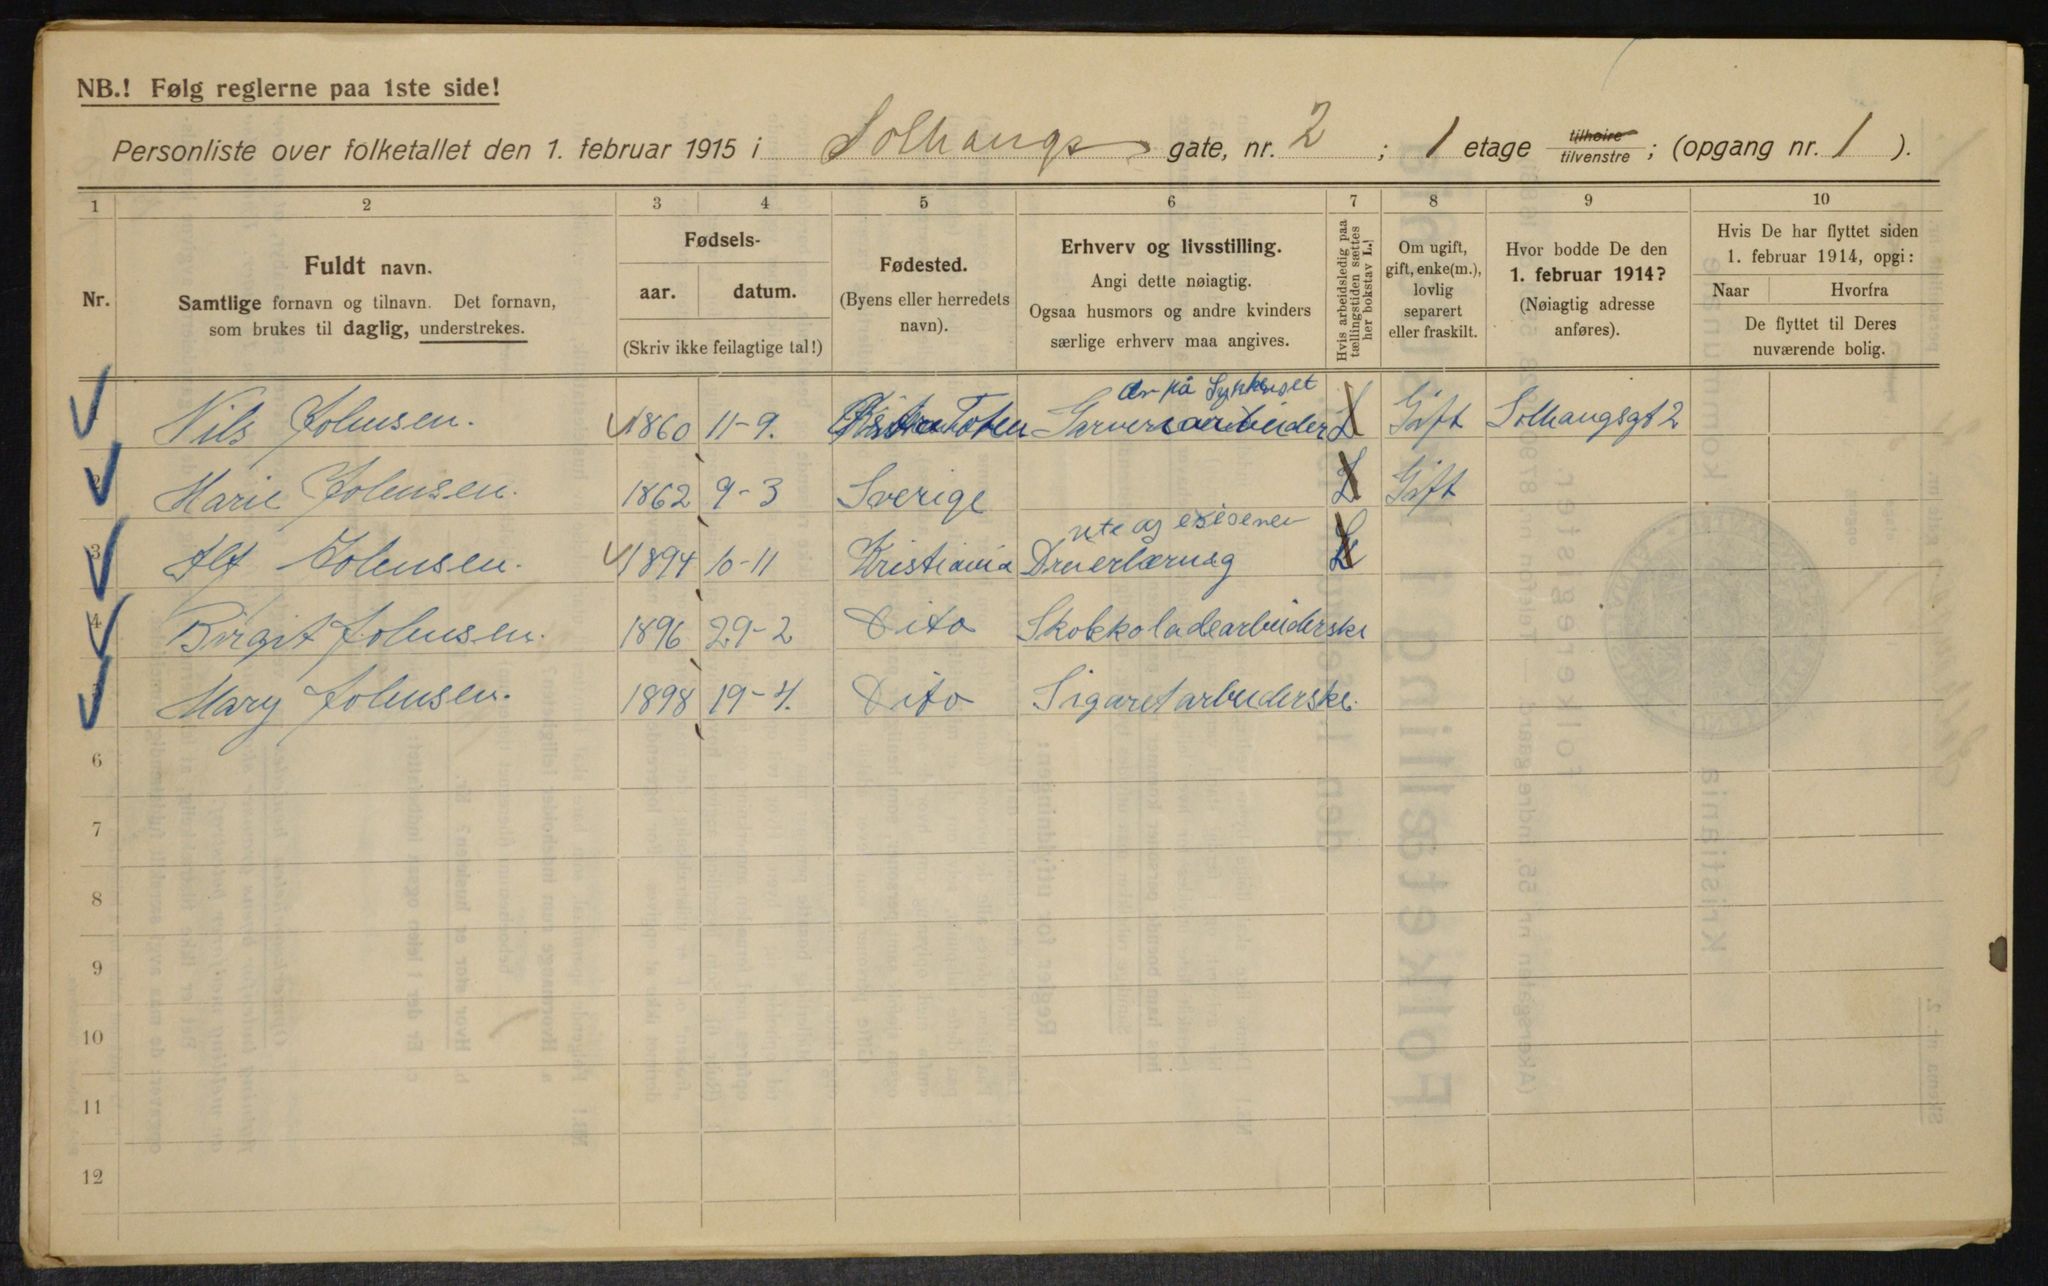 NB.! Følg reglerne paa 1ste side!
Personliste over folketallet den 1. februar 1915 i Solhaugs gate, nr. 2 ; 1 etage tilhøire tilvenstre ; (opgang nr. 1 ).
1 2 3 4 5 6 7 8 9 10
Nr.
Fuldt navn.
Samtlige fornavn og tilnavn. Det fornavn,
som brukes til daglig, understrekes.
Fødsels-
aar. datum.
(Skriv ikke feilagtige tal!)
Fødested.
(Byens eller herredets
navn).
Erhverv og livsstilling.
Angi dette nøiagtig.
Ogsaa husmors og andre kvinders
særlige erhverv maa angives.
Hvis arbeidsledig paa
tællingstiden sættes
her bokstav L.!
Om ugift,
gift, enke(m.),
lovlig
separert
eller fraskilt.
Hvor bodde De den
1. februar 1914?
(Nøiagtig adresse
anføres).
Hvis De har flyttet siden
1. februar 1914, opgi:
Naar Hvorfra
De flyttet til Deres
nuværende bolig.
er på Sykehuset
Nils Johnsen. 1860 11-9. Toten Garveriarbeider L Gift Solhaugsgt 2
2 Marie Johnsen. 1862 9-3 Sverige L Gift
3 Alf Johnsen. 1894 10-11 Kristiania L
4 Birgit Johnsen. 1896 29-2 Dito Skokkoladearbeiderske
Mary Johnsen. 1898 19-4. Dito Sigaretarbeiderske.
6
7
8
9
10
11
12